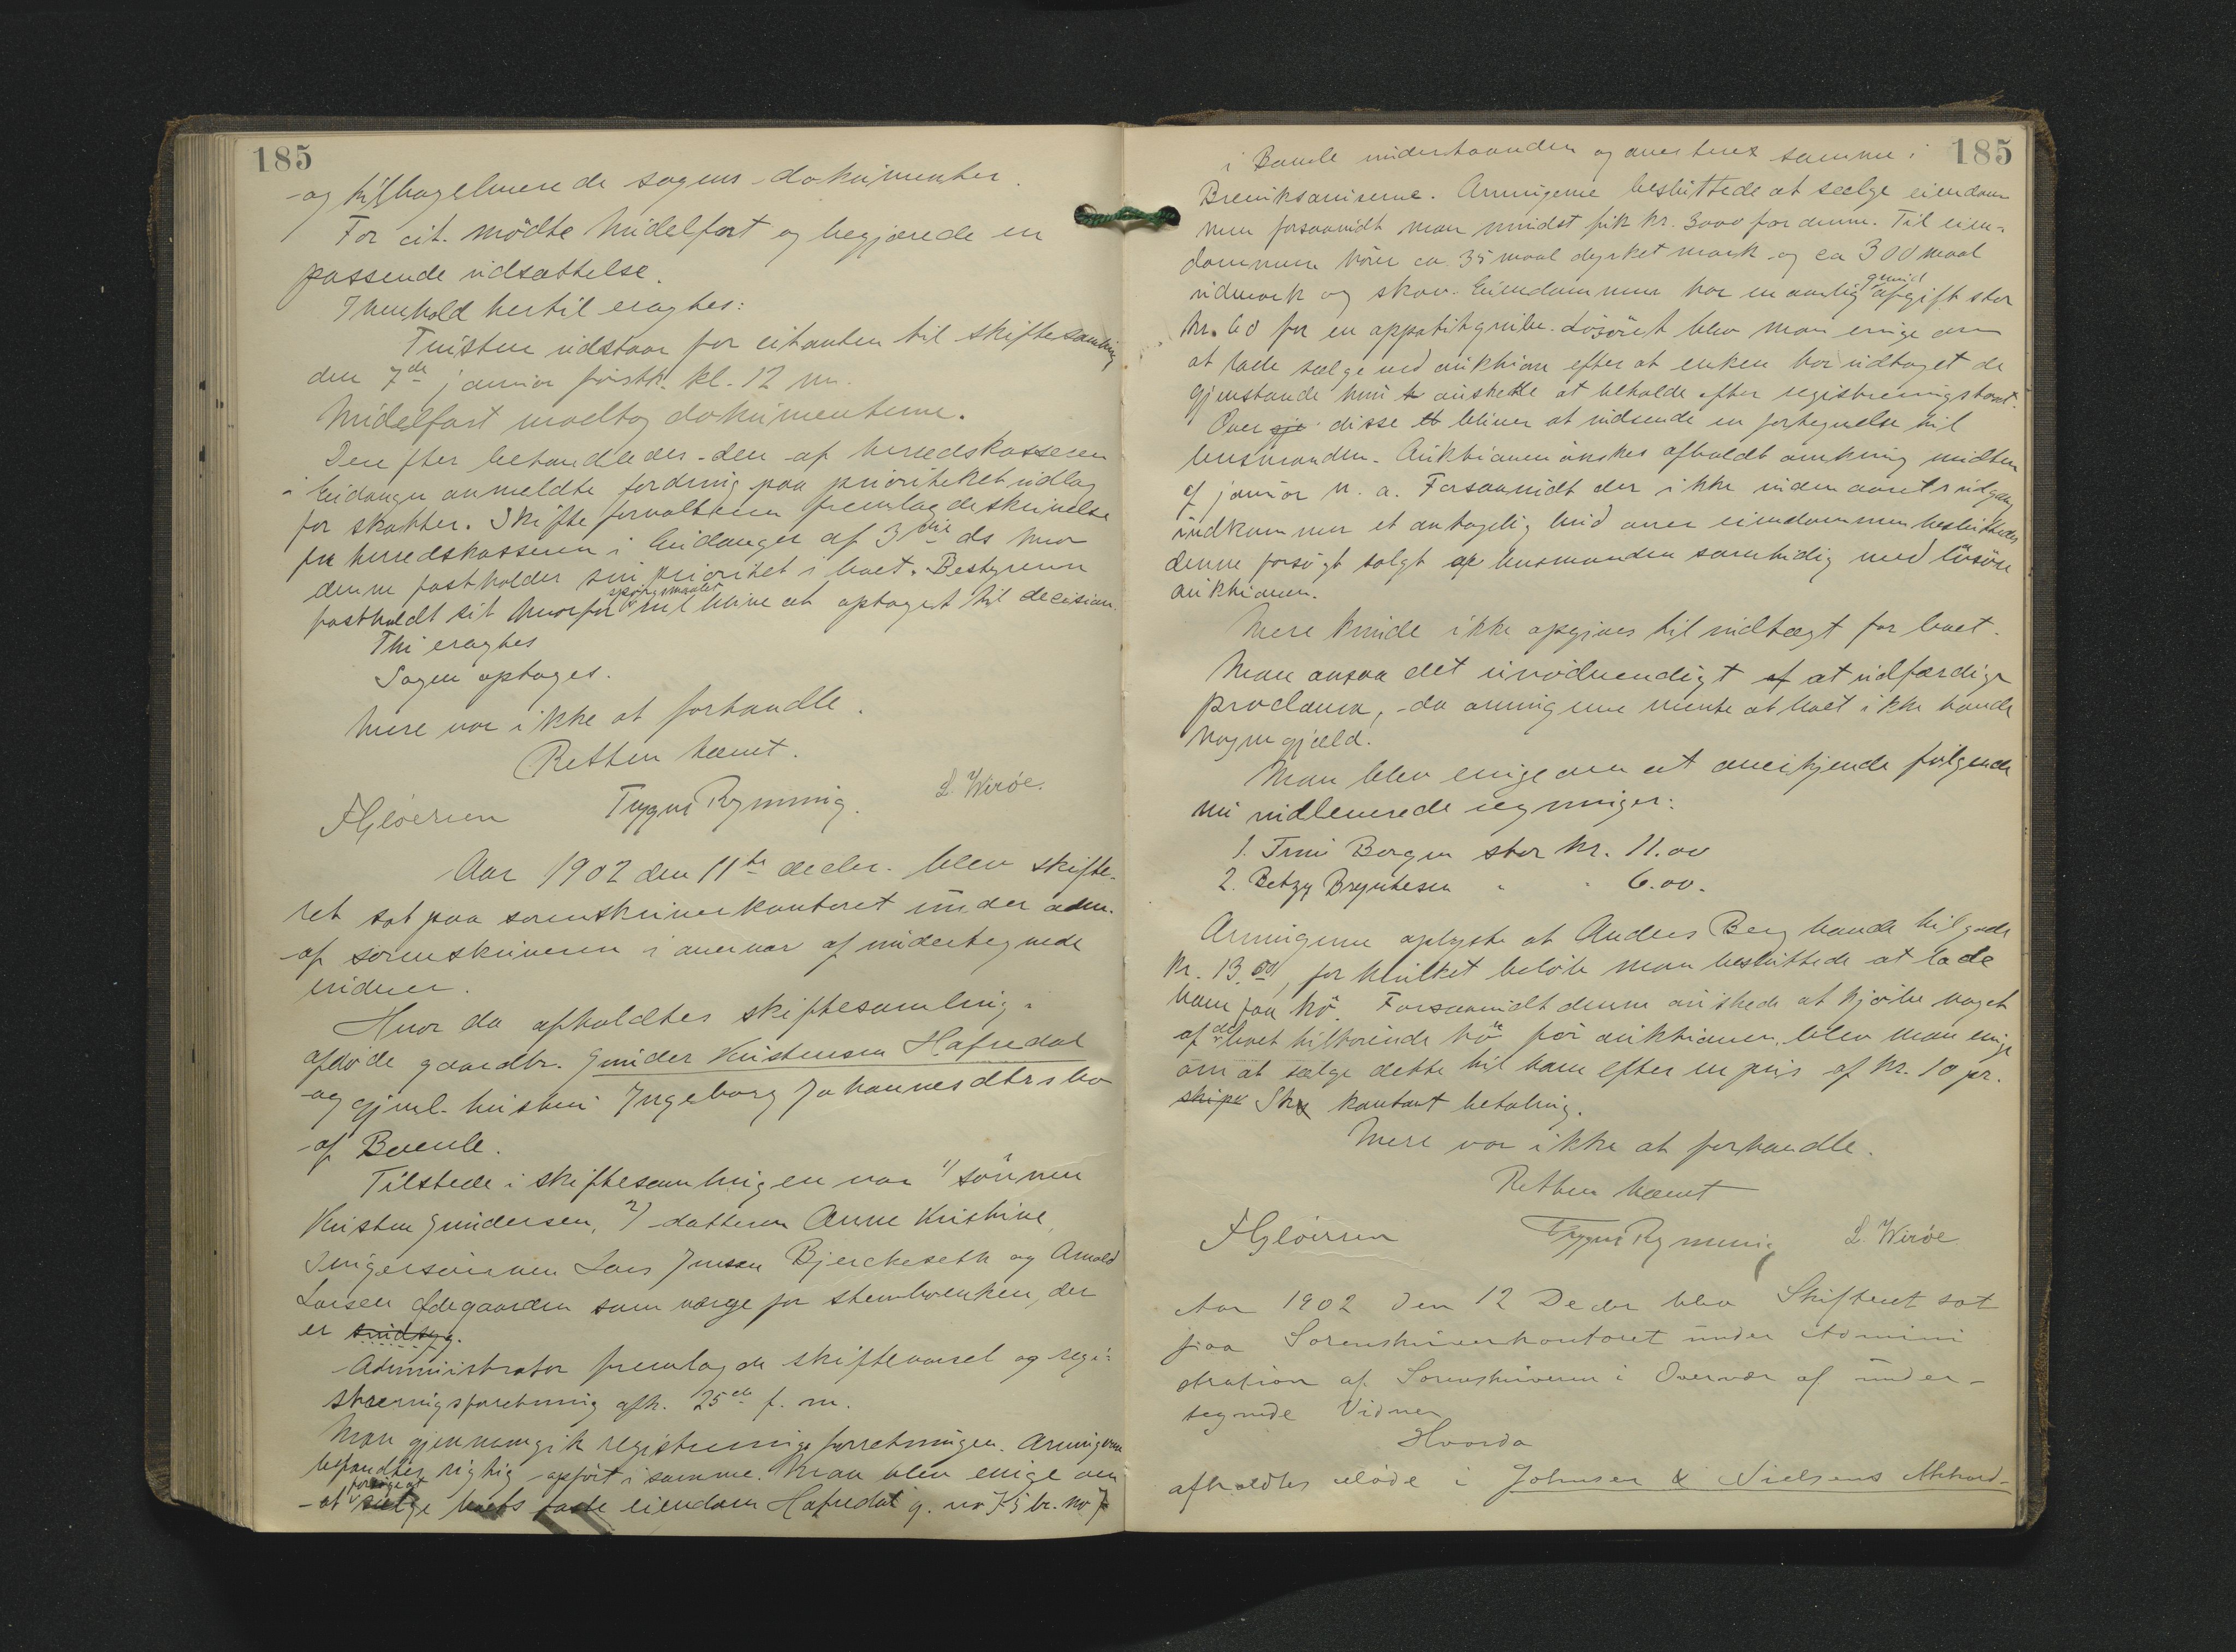 185
og tilbageleverede sagens dokumenter.
For cit. mödte Midelfart og begjærede en
passende udsættelse.
I henhold hertil eragtes:
Tvisten udstaar for citanten til skiftesamling
den 7de januar förstk. kl. 12 m.
Midelfart modtog dokumenterne.
Derefter behandledes den af herredskasseren
i Eidanger anmeldte fordring paa prioritetet udlæg
for skatter. Skifteforvalteren fremlagde skrivelse
fra herredskasseren i Eidanger af 3die ds hvor
denne fastholder sin prioritet i boet. Bestyreren
spörgsmaalet
fastholdt sit hvorfor vil blive at optaget til decision.
Thi eragtes
Sagen optages.
Mere var ikke at forhandle.
Retten hævet.
FGlöersen Trygve Rynning. L. Wiröe.
Aar 1902 den 11te decbr. blev skifte-
ret sat paa sorenskriverkontoret under adm.
af sorenskriveren i overvær af undertegnede
vidner.
Hvor da afholdtes skiftesamling i
afdöde gaardbr. Gunder Kristensen Hafredal
og gjenl. hustru Ingeborg Johannesdtrs bo
af Bamle.
Tilstede i skiftesamlingen var 1) sönnen
Kristen Gundersen, 2) datteren Anne Kristine,
Svigersönnen Lars Jensen Bjerckeseth og Arnold
Larsen Ödegaarden som værge for sterbvenken, der
er sindsyg.
Administrator fremlagde skiftevarsel og regi-
streringsforretning afh. 25de f. m.
Man gjennemgik registreringsforretningen. Arvingerne
befandtes rigtig opfört i samme. Man blev enige om
forsögsvist
at sælge boets faste eiendom Hafredal g. no 75 br. no 7
185
i Bamle underhaanden og avertere samme i
Breviksaviserne. Arvingerne besluttede at sælge eiendom
men forsaavidt man mindst fik kr. 3000 for denne. Til eien-
dommen hörer ca 35 maal dyrket mark og ca 300 maal
grund
udmark og skov. Eiendommen har en aarlig afgift stor
kr. 60 for en appatitgrube. Lösöret blev man enige om
at lade sælge ved auktion efter at enken har udtaget de
gjenstande hun önskede at beholde efter registreringstaxt.
Over sje disse bliver at indsende en fortegnelse til
lensmanden. Auktionen önskes afholdt omkring midten
af januar n. a. Forsaavidt der ikke inden aarets udgang
indkommer et antagelig bud over eiendommen besluttedes
denne forsögt solgt af lensmanden samtidig med lösöre
auktionen.
Mere kunde ikke opgives til indtægt for boet.
Man ansaa det unödvendigt af at udfærdige
proclama, da arvingerne mente at boet ikke havde
nogen gjæld.
Man blev enige om at anerkjende fölgende
nu indleverede regninger:
1. Trine Borgen stor kr. 11.00
2. Betzy Bryntesen " " 6.00.
Arvingerne oplyste at Anders Berg havde tilgode
kr. 13.00, for hvilket belöb man besluttede at lade
ham faa hö. Forsaavidt denne önskede at kjöbe noget
af det boet tilhörende hö för auktionen, blev man enige
om at sælge dette til ham efter en pris af kr. 10 pr.
skipd Sk kontant betaling.
Mere var ikke at forhandle.
Retten hævet
FGlöersen Trygve Rynning L. Wiröe
Aar 1902 den 12 Decbr blev Skifteret sat
paa Sorenskriverkontoret under Admini
stration af Sorenskriveren i Overvær af under-
tegnede Vidner
Hvorda
afholdtes Möde i Johnsen & Nielsens Akkord-